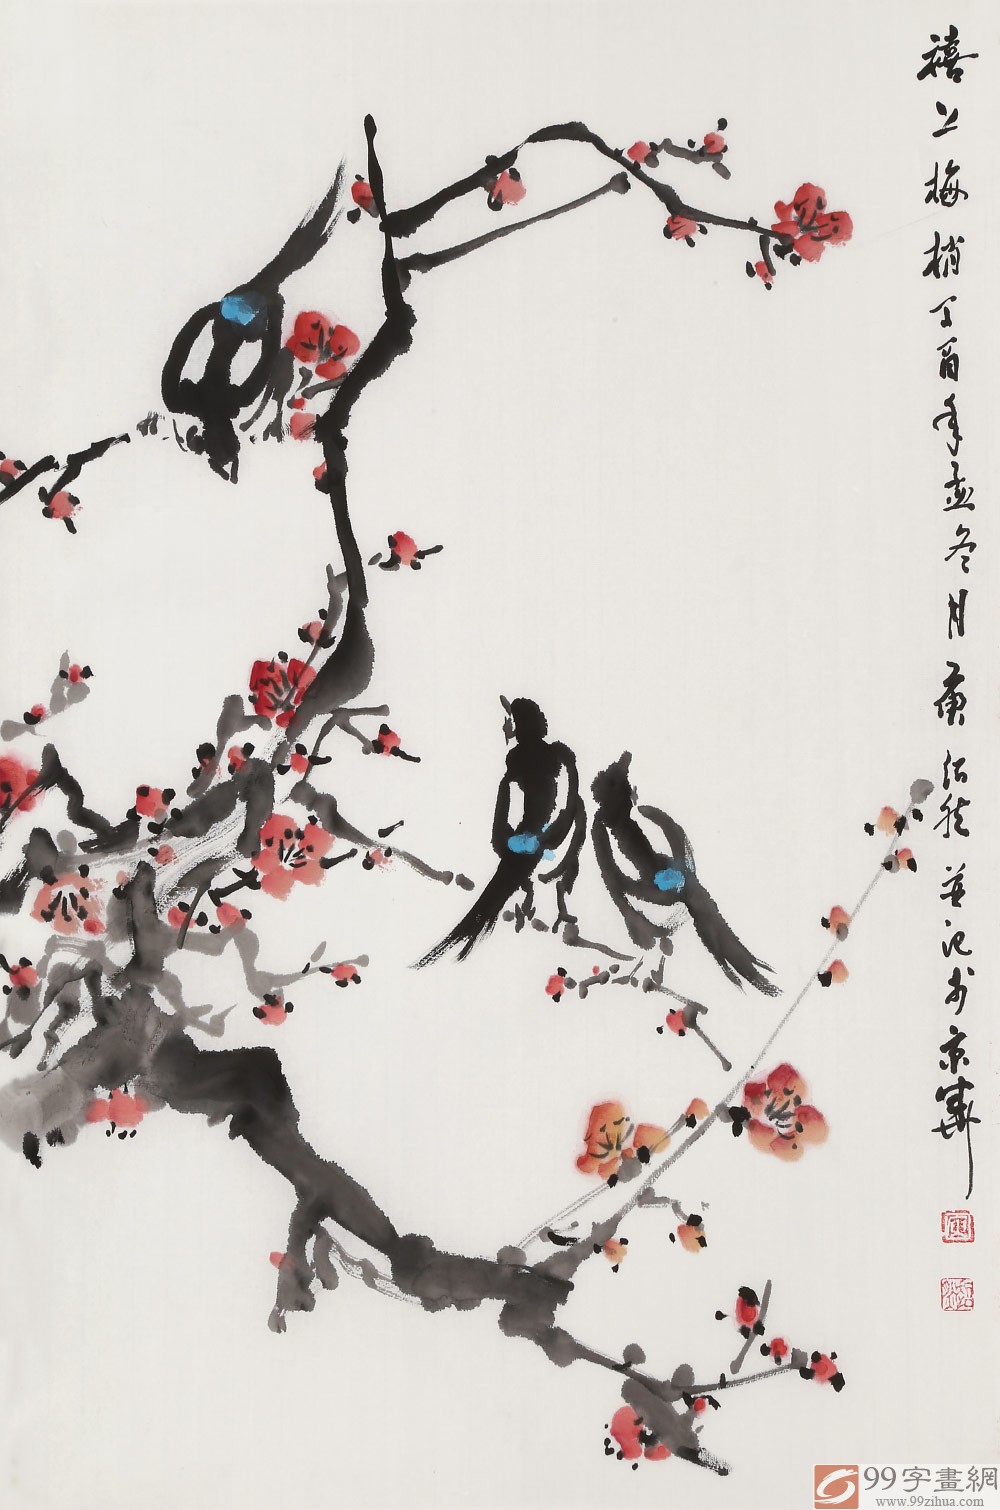 禧上梅梢丁酉年孟冬月庚绍然并记于京华
99字畫網
www.99zihua.com